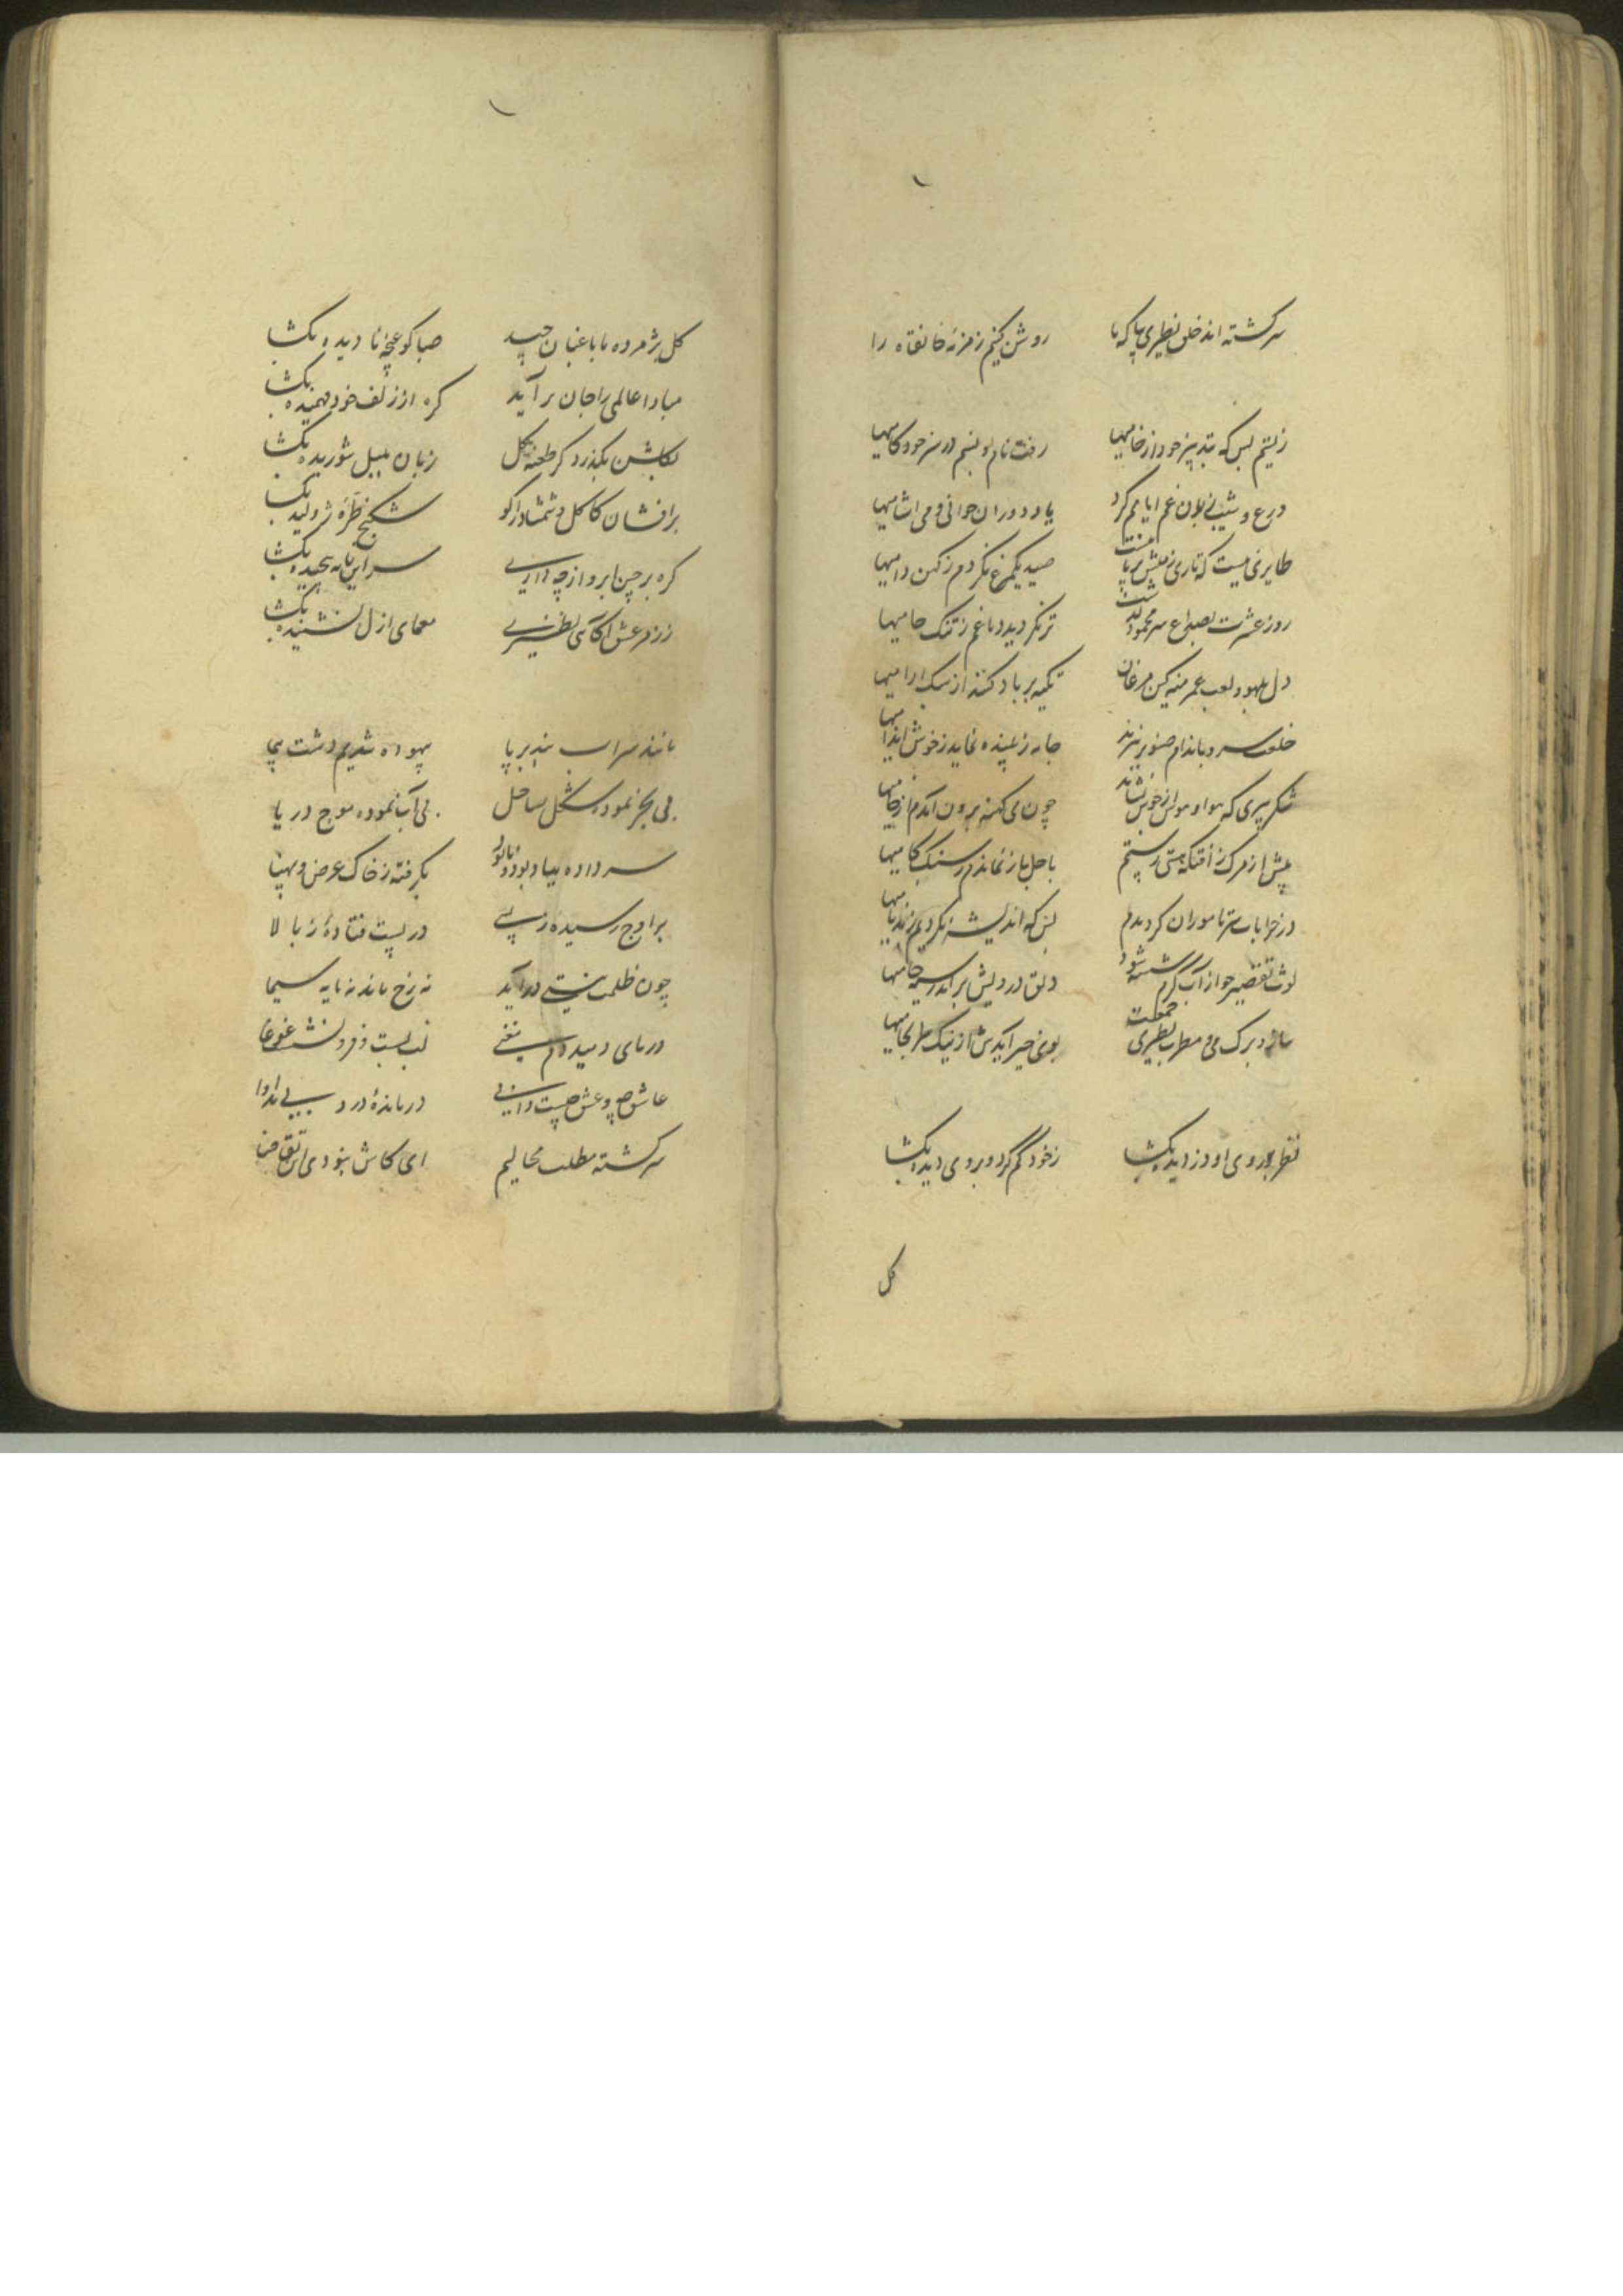 سرکشته اند خلق نظیری بیا که ما روشن کنیم زمزمهٔ خانقاه را
زیستم بس که بتدبیر خود از خامیها رفت نام پدرم در سر خودکامیها
ورع و شیب زبون غم ایامم کرد یاد دوران جوانی و می اشامیها
طایری نیست که تاری ز منش بر پا نیست صید یکمرغ نکردم ز کهن دامیها
روز عشرت بصداع سر مخمور گذشت تر نکردید دماغم ز تنک جامیها
دل بلهو و لعب عمر منه کین مرغان تکیه بر باد کنند از سبک ارامیها
خلعت سرو باندام صنوبر نبرند جامه زیبنده نماید ز خوش اندامیها
شکر پیری که هوا و هوس از جوش نشاند چون می کهنه برون آمدم از خامیها
پیش از مرک ز افتکه هستی رستم با اجل باز نماندم ز سبک کامیها
در خرابات سر ناموران کردیدم بس که اندیشه نکردیم ز بدنامیها
لوث تقصیر چو از آب کرم شسته شود دلق درویش براید ز سیه جامیها
ساز و برک می و مطرب نظیری جمعست بوی خیر آیدش از نیک سرانجامیها
نظر بر روی او دزدیده بکشا ز خود کم کرد و بر وی دیده بکشا
کل
کل پژمرده ما باغبان چید صبا کو غنچه نادیده بکشا
مبادا عالمی را جان بر آید کره از زلف خود فهمیده بکشا
بکلشن بکذر و کر طعنه کل زبان بلبل شوریده بکشا
برافشان کاکل و شمشاد را کو شکنج طرهٔ ژولیده بکشا
کره بر چین ابرو از چه داری سر این نامه پیچیده بکشا
ز رمز عشق اکاهی نظیری معمای ازل نشنیده بکشا
مانند سراب بند بر پا بیهوده شدیم دشت پیما
بی بحر نموده شکل ساحل بی آب نموده موج دریا
سر داده بباد بود و نابود بکرفته ز خاک عرض و پهنا
بر اوج رسیده ز پستی در پست فتادهٔ ز بالا
چون ظلمت نیستی در آید نه رخ ماند نه مایه سیما
دریای دمید دم بنفخی لب بست و فرو نشست غوغا
عاشق چه و عشق چیست دانی درماندهٔ درد بی مداوا
سرکشته مطلب محالیم ای کاش نبودی این تقاضا